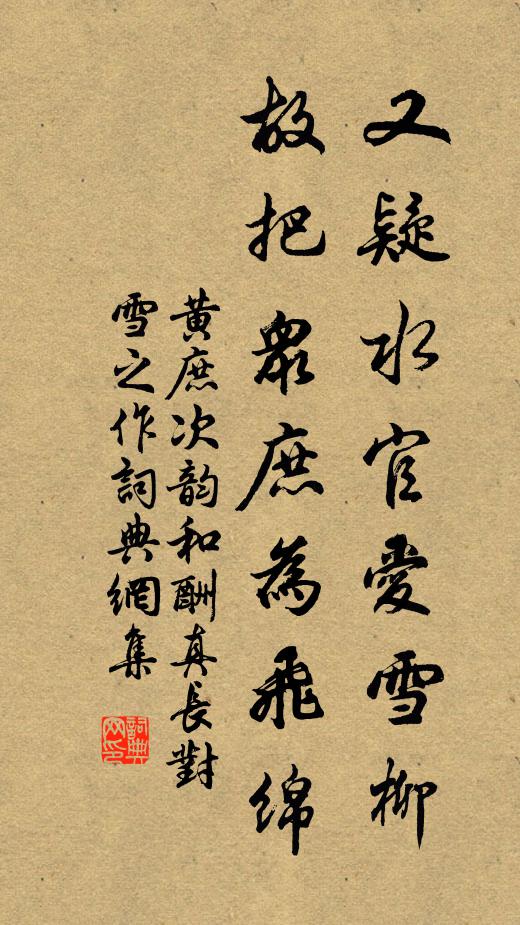 又疑水官愛雪柳
故把眾庶為飛綿
黃庶次韵和酬真長對
雪之作詞典網集
詞典
网印